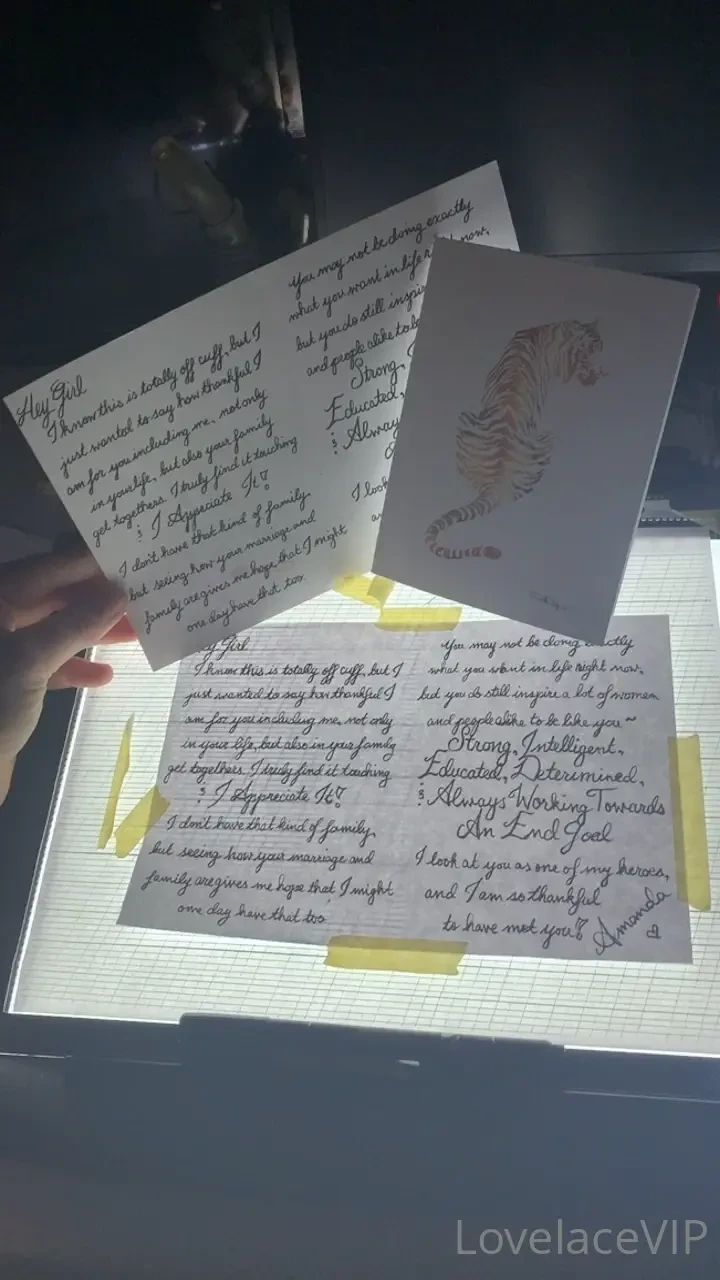 Hey Girl
I know this is totally off cuff, but I
just wanted to say how thankful I
am for you including me, not only
in your life, but also your family
get togethers. I truly find it touching
& I Appeciate It!
I don't have that kind of family
but seeing how your marriage and
family are gives me hope that I might
one day have that too
You may not be doing exactly
what you want in life now,
but you do still
and people alike to
Strong,
Educated,
&
I look
Girl
I know this is totally off cuff, but I
just wanted to say how thankful I
am for you including me, not only
in your life, but also in your family
get togethers. I truly find it touching
& I Appreciate It!
I don't have that kind of family,
but seeing how your marriage and
family are gives me hope that I might
one day have that too
You may not be doing
what you want in life right now,
but you do still inspire a lot of women
and people alike to be like you ~
Strong, Intelligent,
Educated, Determined,
& Always Working Towards
An End Goal
I look at you as one of my heroes,
and I am so thankful
to have met you!
Amanda
LovelaceVIP